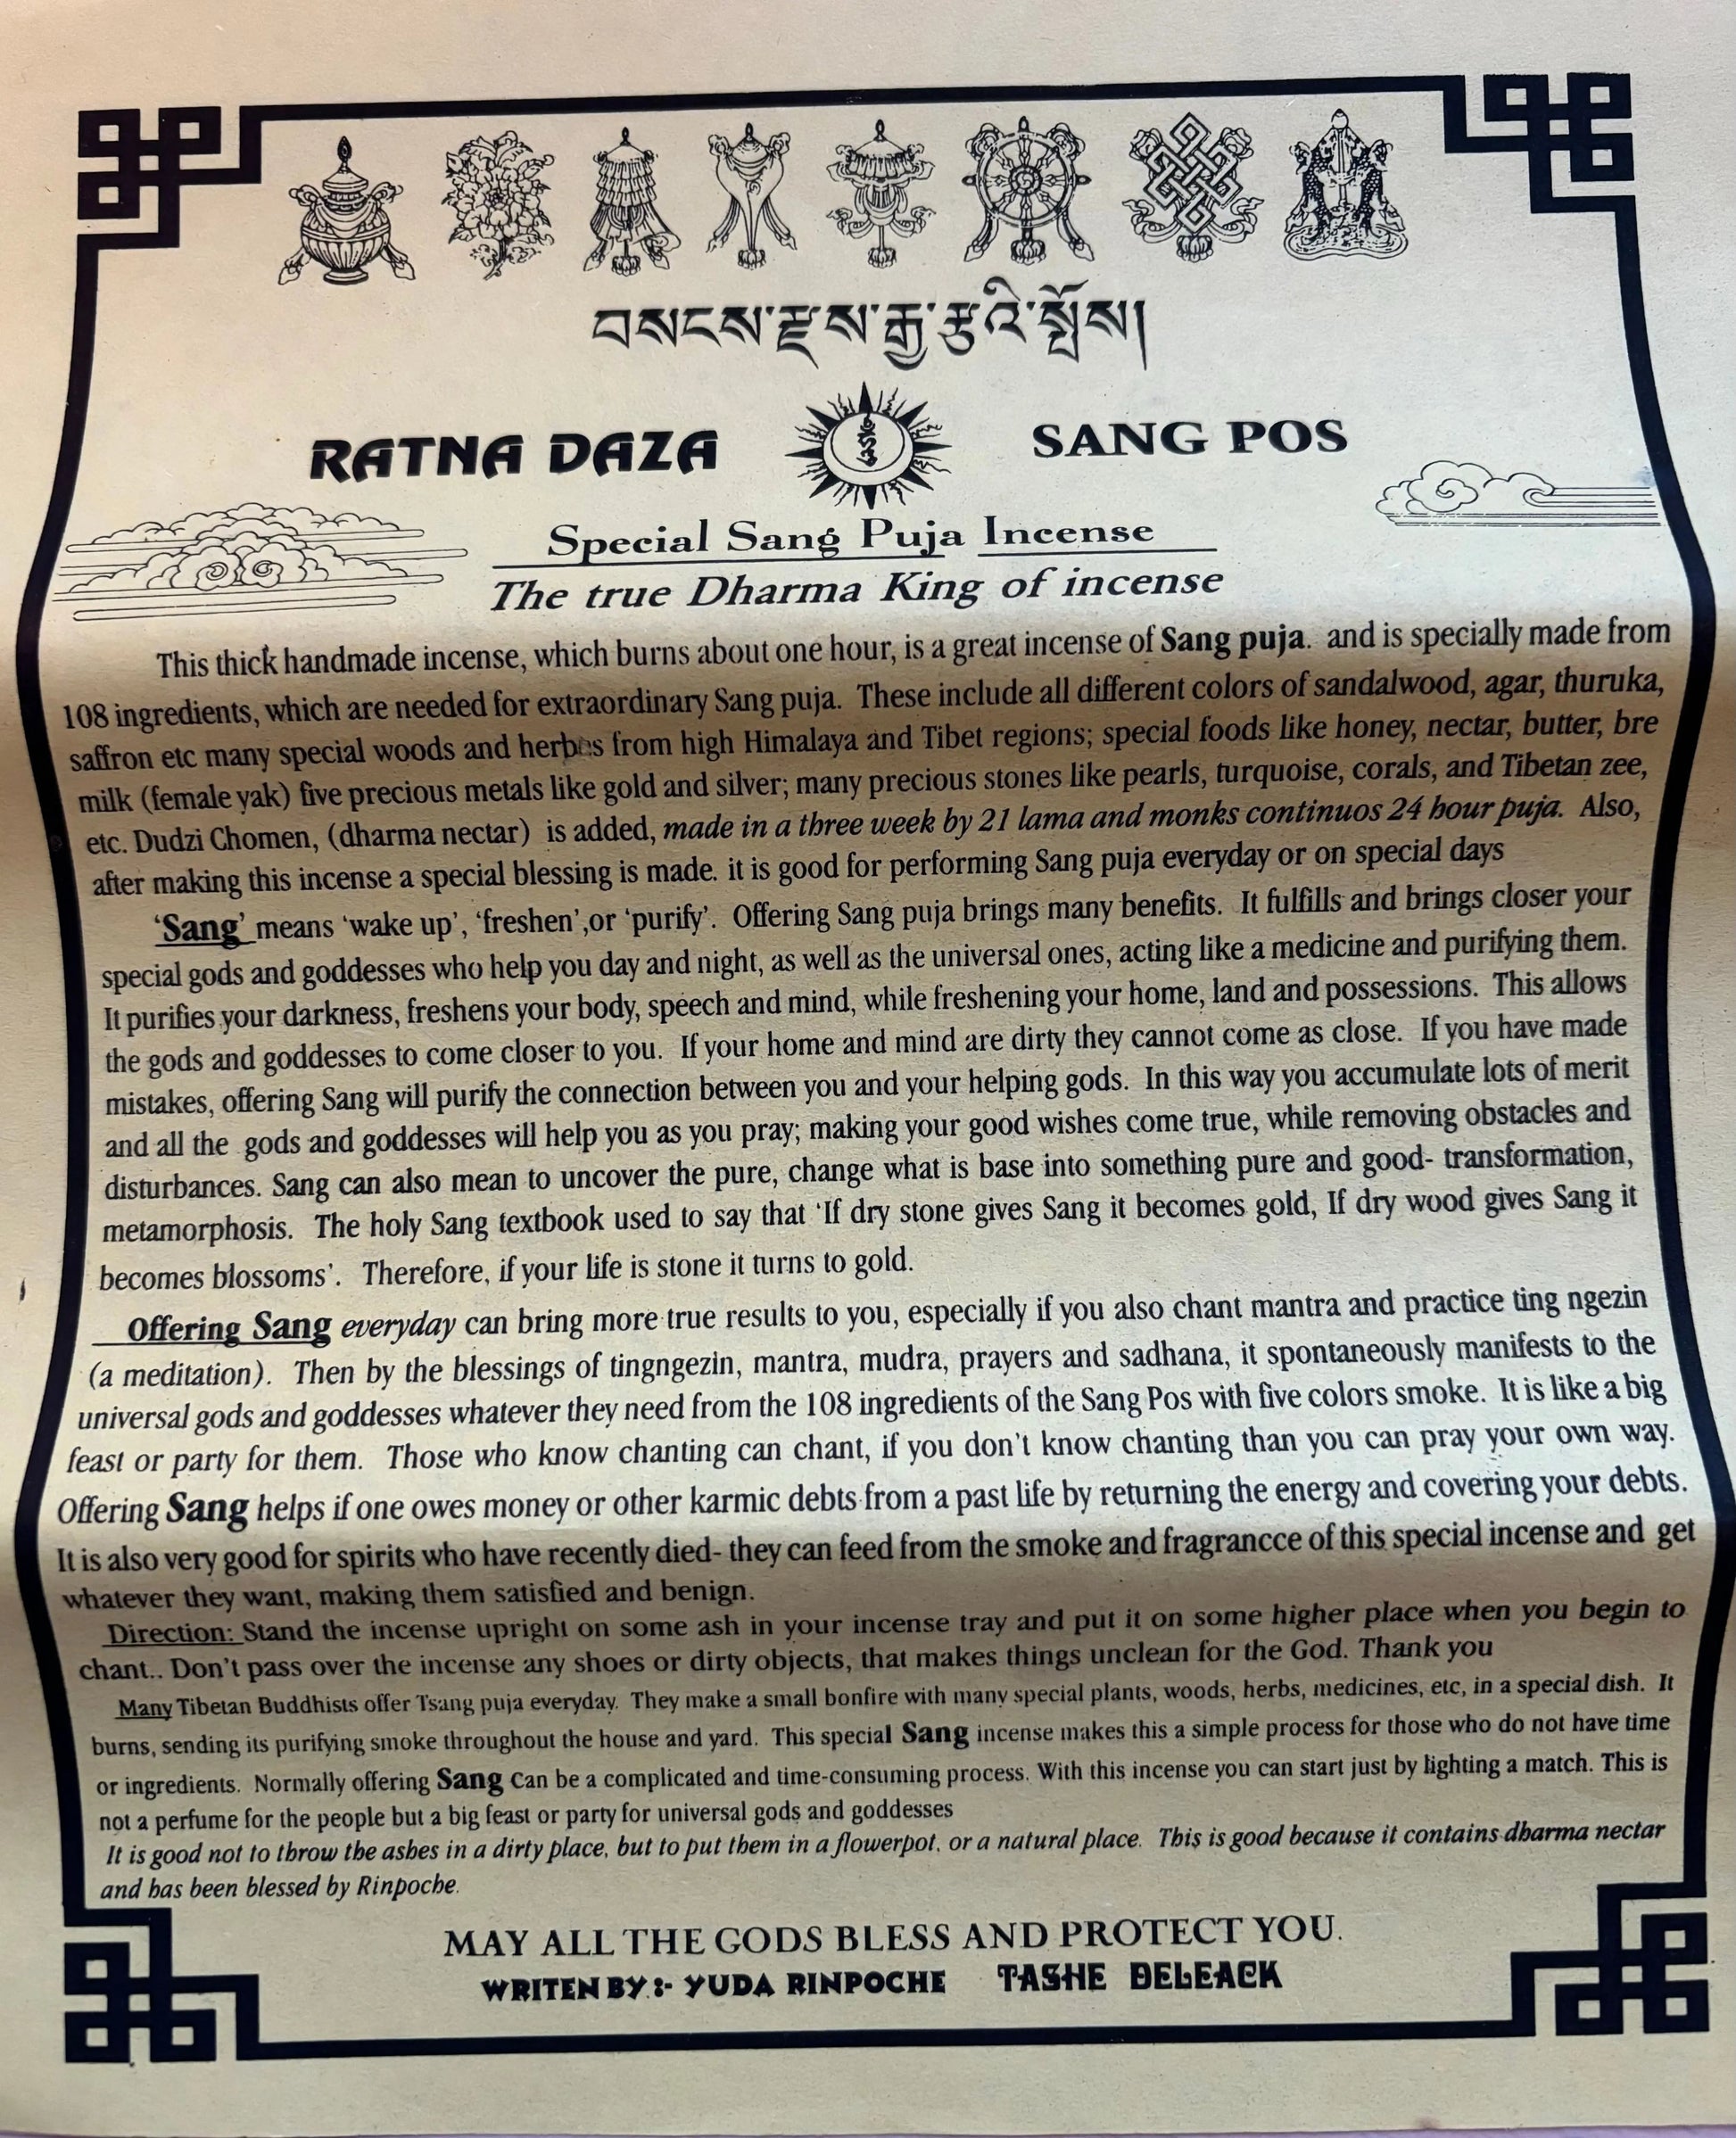 བསངས་རྫས་རྒྱ་རྩའི་སྤོས།
RATNA DAZA SANG POS
Special Sang Puja Incense
The true Dharma King of incense
This thick handmade incense, which burns about one hour, is a great incense of Sang puja. and is specially made from
108 ingredients, which are needed for extraordinary Sang puja. These include all different colors of sandalwood, agar, thuruka,
saffron etc many special woods and herbes from high Himalaya and Tibet regions; special foods like honey, nectar, butter, bre
milk (female yak) five precious metals like gold and silver; many precious stones like pearls, turquoise, corals, and Tibetan zee,
etc. Dudzi Chomen, (dharma nectar) is added, made in a three week by 21 lama and monks continuos 24 hour puja. Also,
after making this incense a special blessing is made. it is good for performing Sang puja everyday or on special days
‘Sang’ means ‘wake up’, ‘freshen’,or ‘purify’. Offering Sang puja brings many benefits. It fulfills and brings closer your
special gods and goddesses who help you day and night, as well as the universal ones, acting like a medicine and purifying them.
It purifies your darkness, freshens your body, speech and mind, while freshening your home, land and possessions. This allows
the gods and goddesses to come closer to you. If your home and mind are dirty they cannot come as close. If you have made
mistakes, offering Sang will purify the connection between you and your helping gods. In this way you accumulate lots of merit
and all the gods and goddesses will help you as you pray; making your good wishes come true, while removing obstacles and
disturbances. Sang can also mean to uncover the pure, change what is base into something pure and good- transformation,
metamorphosis. The holy Sang textbook used to say that ‘If dry stone gives Sang it becomes gold, If dry wood gives Sang it
becomes blossoms’. Therefore, if your life is stone it turns to gold.
Offering Sang everyday can bring more true results to you, especially if you also chant mantra and practice ting ngezin
(a meditation). Then by the blessings of tingngezin, mantra, mudra, prayers and sadhana, it spontaneously manifests to the
universal gods and goddesses whatever they need from the 108 ingredients of the Sang Pos with five colors smoke. It is like a big
feast or party for them. Those who know chanting can chant, if you don’t know chanting than you can pray your own way.
Offering Sang helps if one owes money or other karmic debts from a past life by returning the energy and covering your debts.
It is also very good for spirits who have recently died- they can feed from the smoke and fragrancce of this special incense and get
whatever they want, making them satisfied and benign.
Direction: Stand the incense upright on some ash in your incense tray and put it on some higher place when you begin to
chant.. Don’t pass over the incense any shoes or dirty objects, that makes things unclean for the God. Thank you
Many Tibetan Buddhists offer Tsang puja everyday. They make a small bonfire with many special plants, woods, herbs, medicines, etc, in a special dish. It
burns, sending its purifying smoke throughout the house and yard. This special Sang incense makes this a simple process for those who do not have time
or ingredients. Normally offering Sang Can be a complicated and time-consuming process. With this incense you can start just by lighting a match. This is
not a perfume for the people but a big feast or party for universal gods and goddesses
It is good not to throw the ashes in a dirty place, but to put them in a flowerpot, or a natural place. This is good because it contains dharma nectar
and has been blessed by Rinpoche.
MAY ALL THE GODS BLESS AND PROTECT YOU.
WRITEN BY :- YUDA RINPOCHE TASHE DELEACK